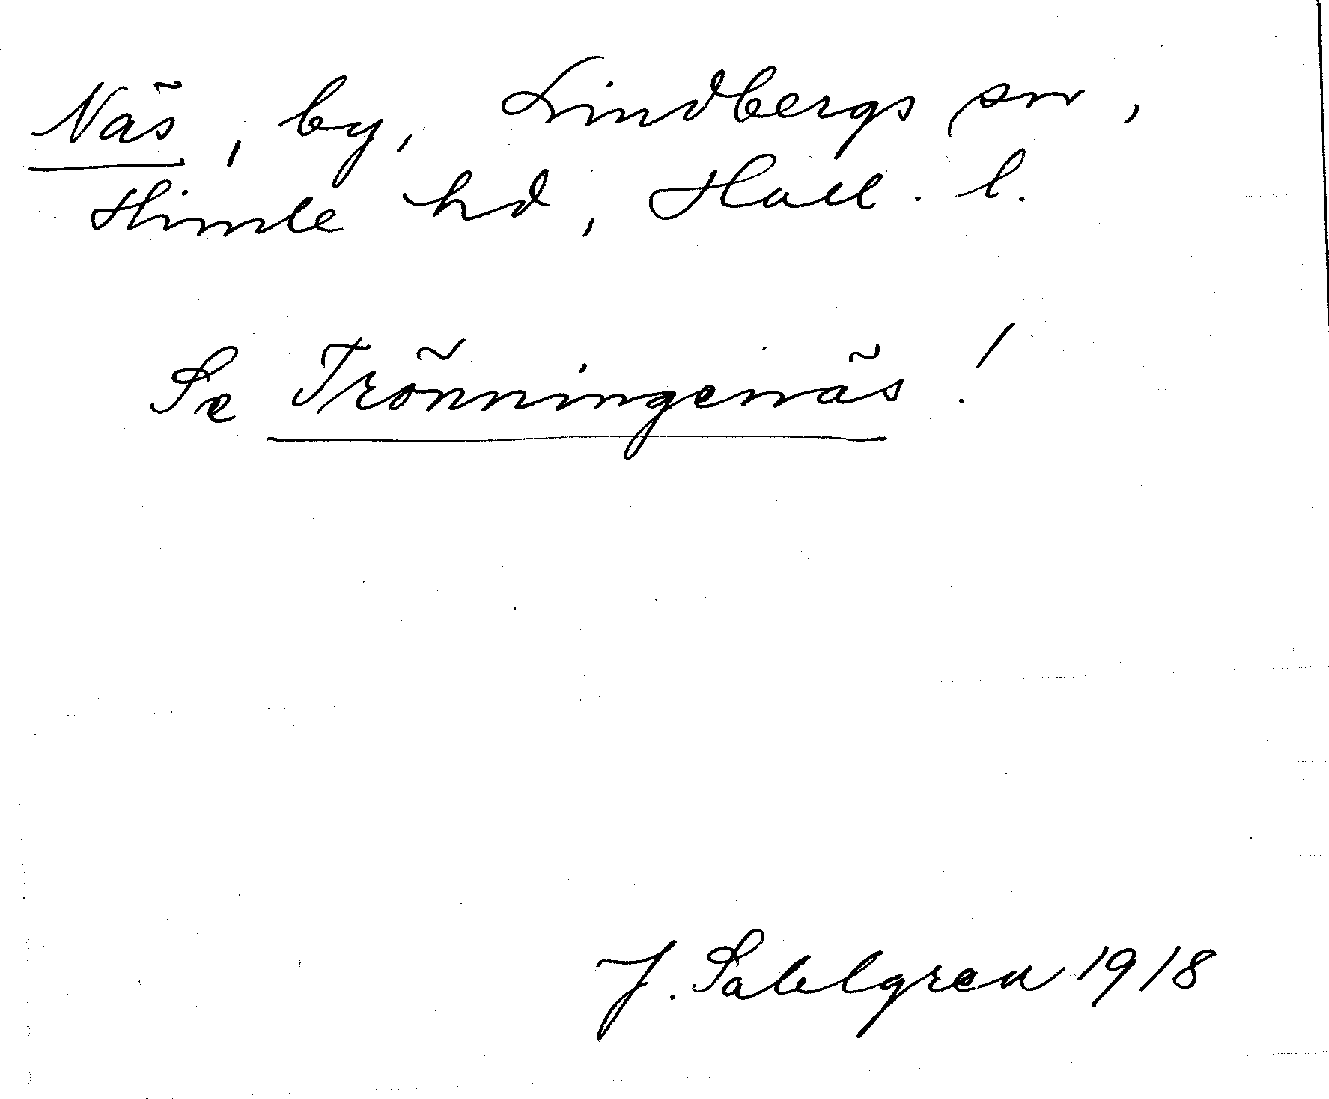 Näs, by, Lindbergs sn,
Himle hd, Hall. l.
Se Trönningenäs!
J. Sahlgren 1918